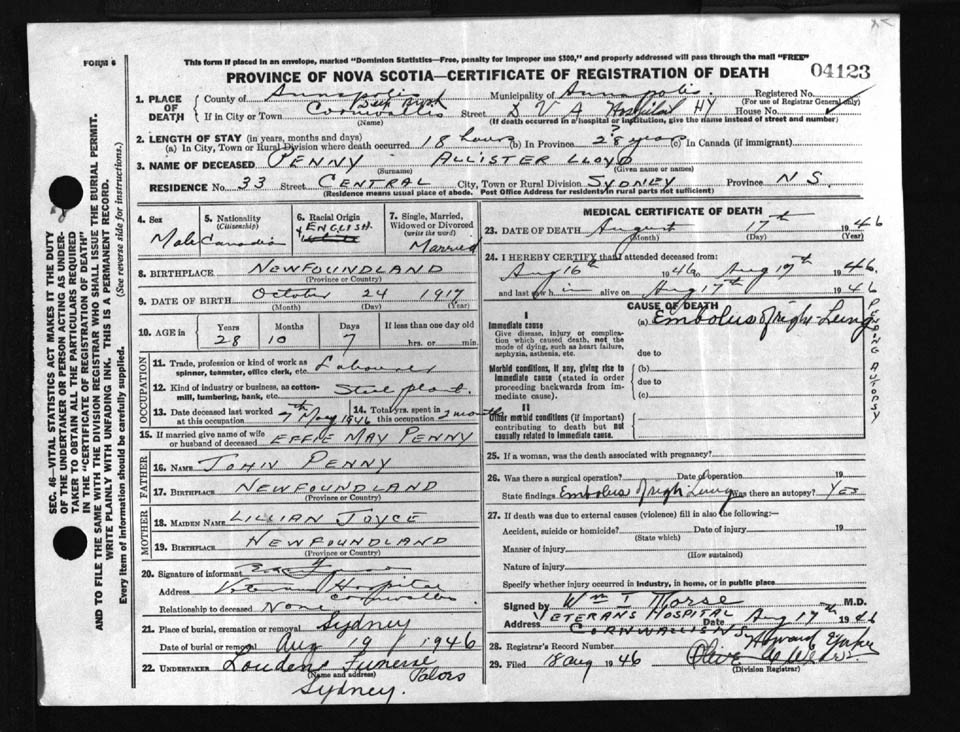 FORM 6
This form if placed in an envelope, marked "Dominion Statistics—Free, penalty for improper use $300," and properly addressed will pass through the mail "FREE"
PROVINCE OF NOVA SCOTIA—CERTIFICATE OF REGISTRATION OF DEATH
04123
1. PLACE OF DEATH
County of Annapolis
Municipality of Annapolis.
Registered No.
(For use of Registrar General only)
If in City or Town Cornwallis Street D V A Hospital HY House No.
(Name)
(If death occurred in a hospital or institution, give the name instead of street and number)
2. LENGTH OF STAY (in years, months and days)
(a) In City, Town or Rural Division where death occurred 18 hours (b) In Province 28 years ? (c) In Canada (if immigrant)
3. NAME OF DECEASED PENNY ALLISTER LLOYD
(Surname) (Given name or names)
RESIDENCE No. 33 Street CENTRAL City, Town or Rural Division SYDNEY Province N S.
(Residence means usual place of abode. Post Office address for residents in rural parts not sufficient)
4. Sex
Male
5. Nationality (Citizenship)
Canadian
6. Racial Origin
ENGLISH.
7. Single, Married, Widowed or Divorced (write the word)
Married
8. BIRTHPLACE NEWFOUNDLAND
(Province or Country)
9. DATE OF BIRTH October 24 1917
(Month) (Day) (Year)
10. AGE in
Years Months Days If less than one day old
28 10 7 hrs. or min.
OCCUPATION
11. Trade, profession or kind of work as spinner, teamster, office clerk, etc. Labourer
12. Kind of industry or business, as cotton-mill, lumbering, bank, etc. Steel plant.
13. Date deceased last worked at this occupation 7th May 1946
14. Total yrs. spent in this occupation 2 months
15. If married give name of wife or husband of deceased EFFIE MAY PENNY
FATHER
16. NAME JOHN PENNY
17. BIRTHPLACE NEWFOUNDLAND
(Province or Country)
MOTHER
18. MAIDEN NAME LILLIAN JOYCE
19. BIRTHPLACE NEWFOUNDLAND
(Province or Country)
20. Signature of informant
Address Veterans Hospital
Cornwallis
Relationship to deceased None
21. Place of burial, cremation or removal Sydney
Date of burial or removal Aug 19 1946
22. UNDERTAKER
(Name and address)
Sydney.
MEDICAL CERTIFICATE OF DEATH
23. DATE OF DEATH August 17th 1946
(Month) (Day) (Year)
24. I HEREBY CERTIFY that I attended deceased from:
Aug 16th 1946 to Aug 17th 1946.
and last saw him alive on Aug 17th 1946
CAUSE OF DEATH
I
Immediate cause
Give disease, injury or complication which caused death, not the mode of dying, such as heart failure, asphyxia, asthenia, etc.
(a) Embolus of right Lung
due to
PENDING AUTOPSY
Morbid conditions, if any, giving rise to immediate cause (stated in order proceeding backwards from immediate cause).
(b)
due to
(c)
II
Other morbid conditions (if important) contributing to death but not causally related to immediate cause.
25. If a woman, was the death associated with pregnancy?
26. Was there a surgical operation? Date of operation 19
State findings Embolus of right Lung Was there an autopsy? Yes
27. If death was due to external causes (violence) fill in also the following:—
Accident, suicide or homicide? Date of injury 19
(State which)
Manner of injury
(How sustained)
Nature of injury
Specify whether injury occurred in industry, in home, or in public place
Signed by Wm T Morse M.D.
Address VETERANS HOSPITAL Date Aug 17th 1946
CORNWALLIS N S
28. Registrar's Record Number
29. Filed 18 Aug 1946
(Division Registrar)
SEC. 46—VITAL STATISTICS ACT MAKES IT THE DUTY
OF THE UNDERTAKER OR PERSON ACTING AS UNDER-
TAKER TO OBTAIN ALL THE PARTICULARS REQUIRED
IN THE "CERTIFICATE OF REGISTRATION OF DEATH"
AND TO FILE THE SAME WITH THE DIVISION REGISTRAR WHO SHALL ISSUE THE BURIAL PERMIT.
WRITE PLAINLY WITH UNFADING INK. THIS IS A PERMANENT RECORD.
Every item of information should be carefully supplied. (See reverse side for instructions.)